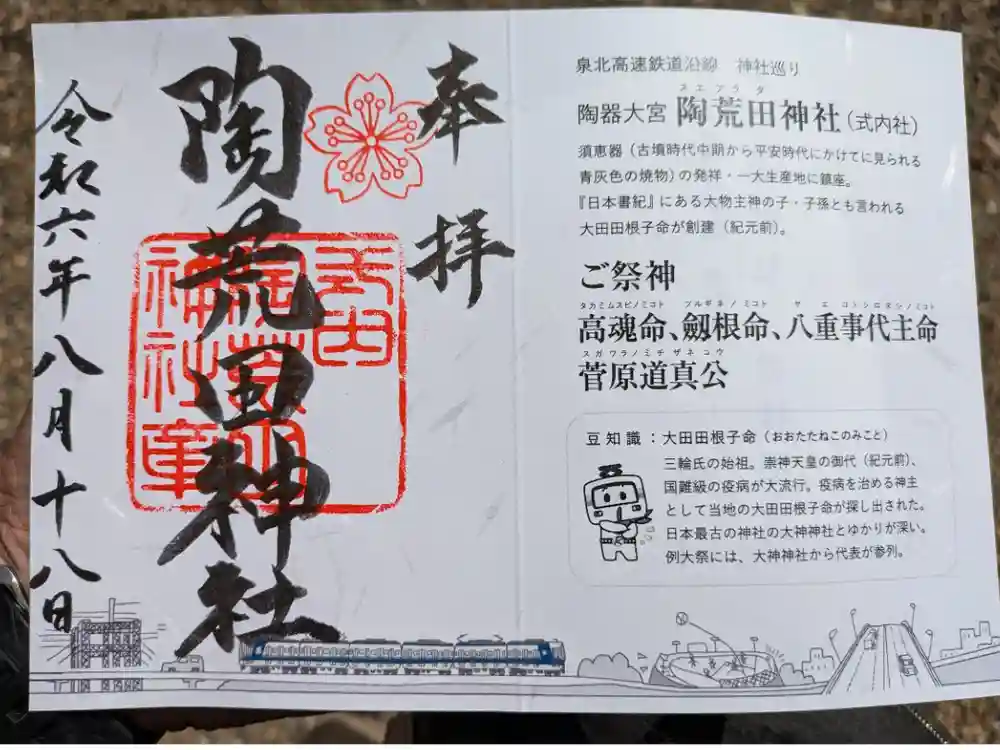 奉拝
陶荒田神社
令和六年八月十八日
式内
陶荒田
神社章
泉北高速鉄道沿線 神社巡り
スエアラタ
陶器大宮 陶荒田神社(式内社)
須恵器(古墳時代中期から平安時代にかけてに見られる
青灰色の焼物)の発祥・一大生産地に鎮座。
『日本書紀』にある大物主神の子・子孫とも言われる
大田田根子命が創建(紀元前)。
ご祭神
タカミムスビノミコト ツルギネノミコト ヤエコトシロヌシノミコト
高魂命、劔根命、八重事代主命
スガワラノミチザネコウ
菅原道真公
豆知識:大田田根子命(おおたたねこのみこと)
三輪氏の始祖。崇神天皇の御代(紀元前)、
国難級の疫病が大流行。疫病を治める神主
として当地の大田田根子命が探し出された。
日本最古の神社の大神神社とゆかりが深い。
例大祭には、大神神社から代表が参列。